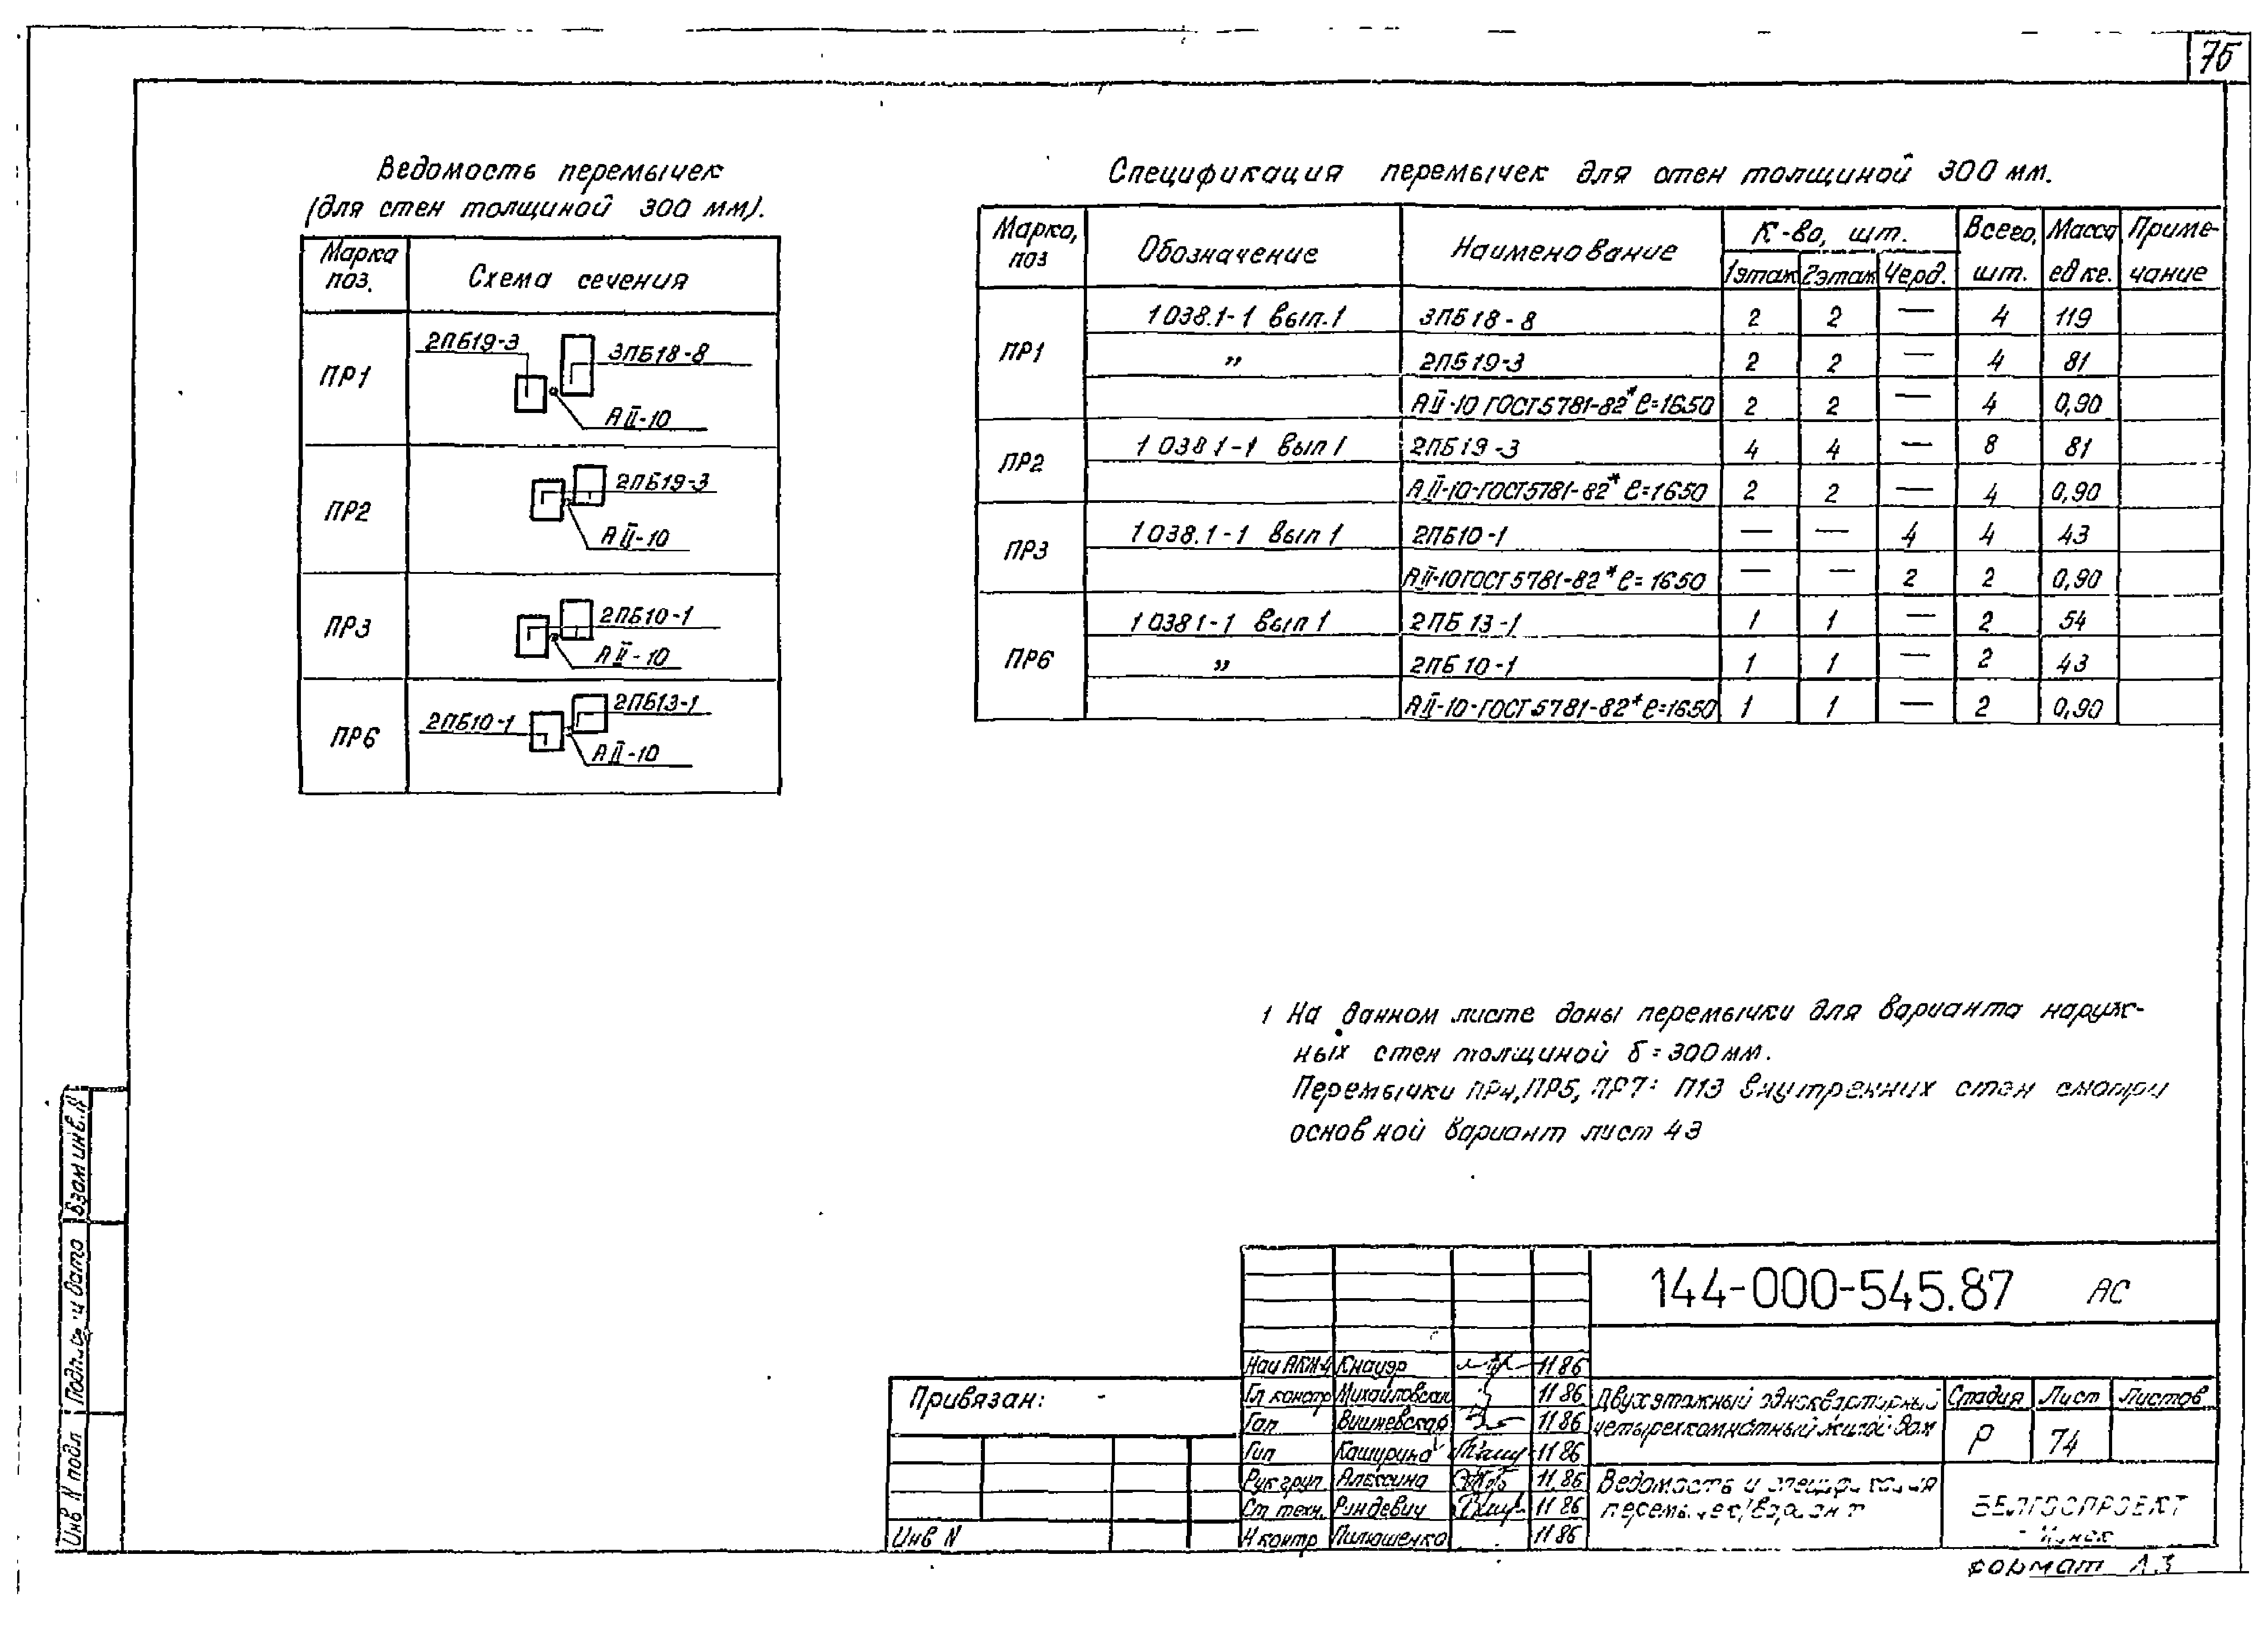 75
Ведомость перемычек
(для стен толщиной 300 мм).
Марка поз. Схема сечения
ПР1 2ПБ19-3 3ПБ18-8 АII-10
ПР2 2ПБ19-3 АII-10
ПР3 2ПБ10-1 АII-10
ПР6 2ПБ10-1 2ПБ13-1 АII-10
Спецификация перемычек для стен толщиной 300 мм.
Марка, поз Обозначение Наименование К-во, шт. Всего, шт. Масса ед кг. Приме-чание
1этаж 2этаж Черд.
ПР1 1 038.1-1 вып.1 3ПБ18-8 2 2 — 4 119
„ 2ПБ19-3 2 2 — 4 81
АII-10 ГОСТ5781-82* ℓ=1650 2 2 — 4 0,90
ПР2 1 038 1-1 вып 1 2ПБ19-3 4 4 — 8 81
АII-10-ГОСТ5781-82* ℓ=1650 2 2 — 4 0,90
ПР3 1 038.1-1 вып 1 2ПБ10-1 — — 4 4 43
АII-10ГОСТ5781-82* ℓ=1650 — — 2 2 0,90
ПР6 1 038 1-1 вып 1 2ПБ 13-1 1 1 — 2 54
„ 2ПБ 10-1 1 1 — 2 43
АII-10-ГОСТ5781-82* ℓ=1650 1 1 — 2 0,90
1 На данном листе даны перемычки для варианта наруж-
ных стен толщиной δ=300мм.
Перемычки ПР4, ПР5, ПР7÷П13 внутренних стен смотри
основной вариант лист 43
Взам инв. N
Подпись и дата
Инв N подл
144-000-545.87 АС
Нач АКМ-4 Кнауэр 11 86
Гл констр Михайловский 11 86
Гап Вишневская 11 86
Гип Кашурина 11 86
Рук груп. Алексина 11.86
Ст техн. Риндевич 11 86
Н контр Пилюшенко 11 86
Привязан:
Инв N
Двухэтажный одноквартирный
четырехкомнатный жилой дом
Стадия Лист Листов
Р 74
Ведомость и спецификация
перемычек/вариант
БЕЛГОСПРОЕКТ
г Минск
формат А3